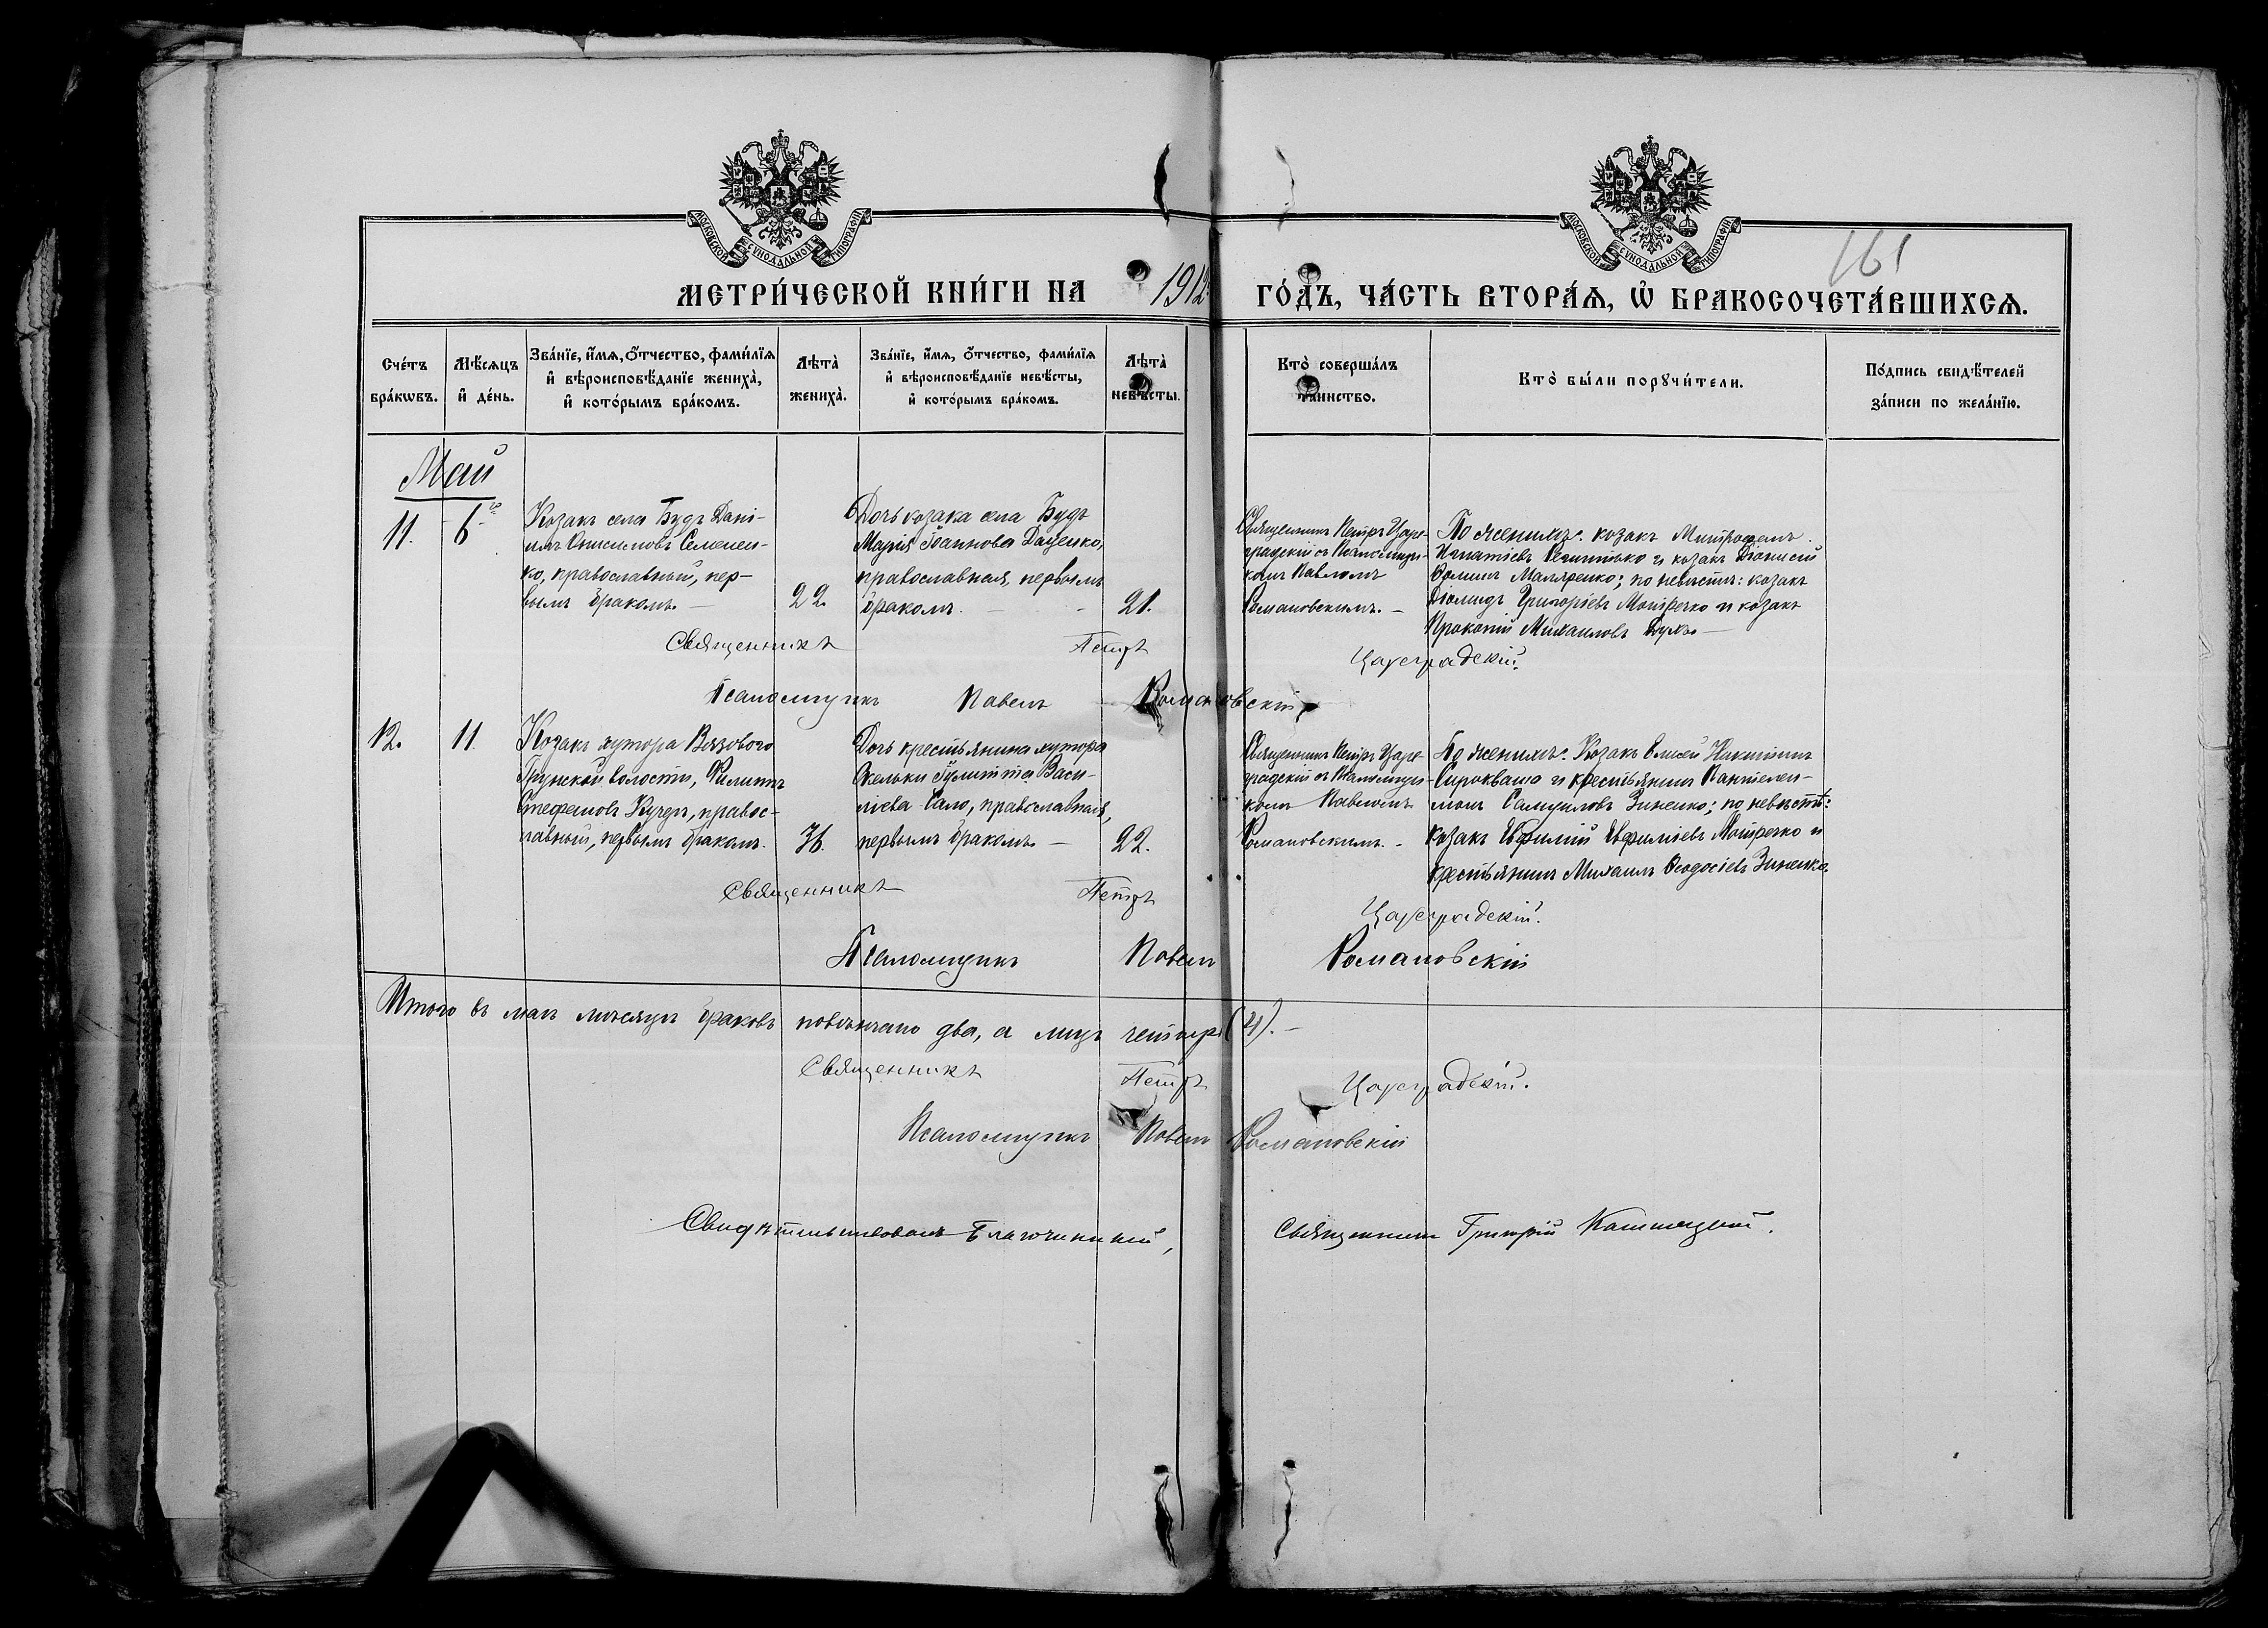 МОСКОВСКОЙ СУНОДАЛЬНОЙ ТИПОГРАФІИ
МОСКОВСКОЙ СУНОДАЛЬНОЙ ТИПОГРАФІИ
161
МЕТРИ́ЧЕСКОЙ КНИ́ГИ НА 1912
ГО́ДЪ, ЧА́СТЬ ВТОРА́Ѧ, Ѽ БРАКОСОЧЕТА́ВШИХСѦ.
Сче́тъ
бра́кѡвъ.
Мѣ́сѧцъ
и҆ де́нь.
Зва́нїе, и҆́мѧ, ѻ҆́тчество, фами́лїѧ
и҆ вѣроисповѣ́данїе жениха̀,
и҆ кото́рымъ бра́комъ.
Лѣта̀
жениха̀.
Зва́нїе, и҆́мѧ, ѻ҆́тчество, фами́лїѧ
и҆ вѣроисповѣ́данїе невѣ́сты,
и҆ кото́рымъ бра́комъ.
Лѣта̀
невѣ́сты.
Кто̀ соверша́лъ
та́инство.
Кто̀ бы́ли порꙋчи́тели.
По́дпись свидѣ́телей
за́писи по жела́нїю.
Май
11.
6
Козакъ села Будъ Дані-
илъ Онисимовъ Семенен-
ко, православный, пер-
вымъ бракомъ. —
22.
Дочь козака села Будъ
Марія Іоаннова Даценко,
православная, первымъ
бракомъ. —
21.
Священникъ Петръ Царе-
градскій съ Псаломщи-
комъ Павломъ
Романовскимъ. —
По женихѣ: козакъ Митрофанъ
Игнатіевъ и козакъ Діонисій
Ѳоминъ Маляренко; по невѣстѣ: козакъ
Діомидъ Григоріевъ Мотречко и козакъ
Прокопій Михаиловъ
Священникъ Петръ Цареградскій.
Псаломщикъ Павелъ Романовскій
12.
11.
Козакъ хутора Вязового
Грунской волости, Филиппъ
Стефановъ Кучеръ, правос-
лавный, первымъ бракомъ.
36.
Дочь крестьянина хутора
Скельки Іулитта Васи-
ліева Сало, православная,
первымъ бракомъ. —
22.
Священникъ Петръ Царе-
градскій съ Псаломщи-
комъ Павломъ
Романовскимъ. —
По женихѣ: Козакъ Елисей Никитинъ
Сироквашa и крестьянинъ Пантелеи-
монъ Самуиловъ Зиненко; по невѣстѣ:
козакъ Евфимій Евфиміевъ Мотречко и
крестьянинъ Михаилъ Ѳеодосіевъ Зиненко.
Священникъ Петръ Цареградскій.
Псаломщикъ Павелъ Романовскій
Итого въ маѣ мѣсяцѣ браковъ повѣнчано два, а лицъ четыре (4). —
Священникъ Петръ Цареградскій.
Псаломщикъ Павелъ Романовскій
Свидѣтельствовалъ Благочинный, Священникъ Григорій